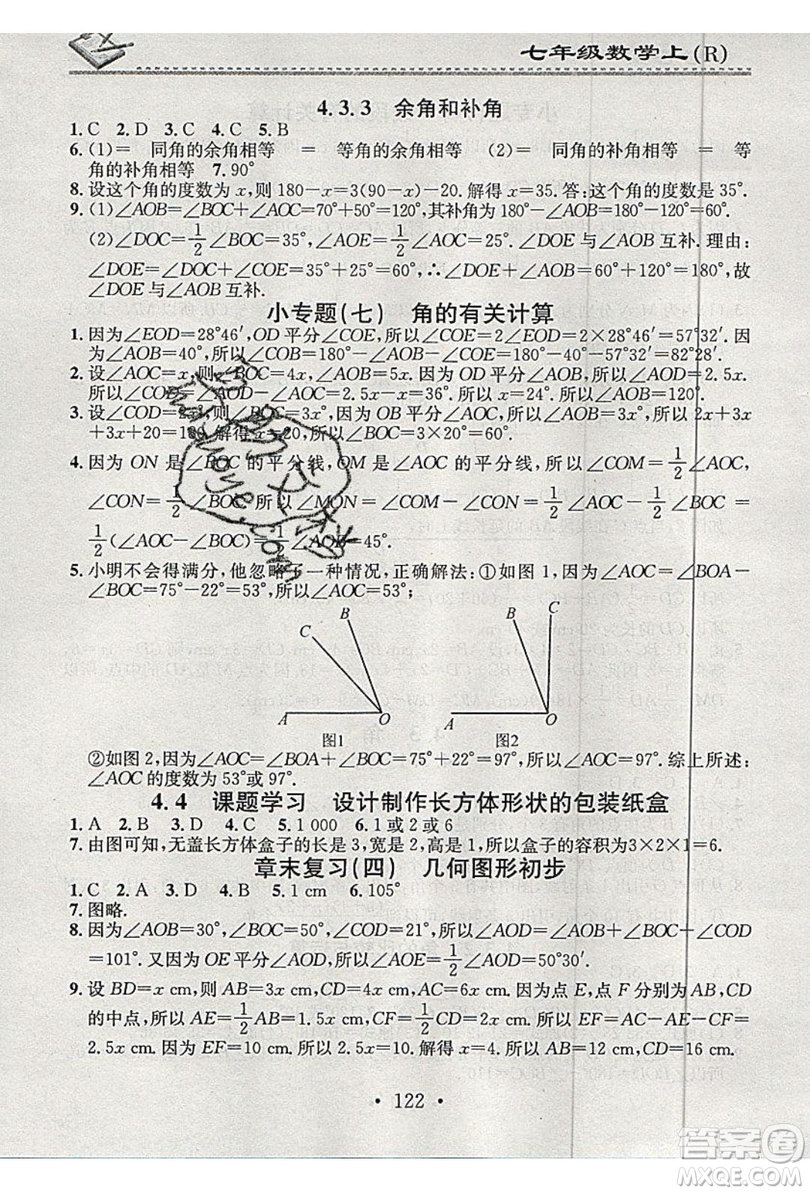 七年级数学上(R)
4.3.3 余角和补角
1. C 2. D 3. C 4. C 5. B
6. (1)= 同角的余角相等 = 等角的余角相等 (2)= 同角的补角相等 = 等
角的补角相等 7. 90°
8. 设这个角的度数为 x,则 180-x=3(90-x)-20. 解得 x=35. 答:这个角的度数是 35°.
9. (1)∠AOB=∠BOC+∠AOC=70°+50°=120°,其补角为 180°-∠AOB=180°-120°=60°.
(2)∠DOC=1/2∠BOC=35°,∠AOE=1/2∠AOC=25°. ∠DOE 与∠AOB 互补. 理由:
∠DOE=∠DOC+∠COE=35°+25°=60°,∴∠DOE+∠AOB=60°+120°=180°,故
∠DOE 与∠AOB 互补.
小专题(七) 角的有关计算
1. 因为∠EOD=28°46′,OD 平分∠COE,所以∠COE=2∠EOD=2×28°46′=57°32′. 因
为∠AOB=40°,所以∠COB=180°-∠AOB-∠COE=180°-40°-57°32′=82°28′.
2. 设∠AOC=x,则∠BOC=4x,∠AOB=5x. 因为 OD 平分∠AOB,所以∠AOD=2.5x.
所以∠COD=∠AOD-∠AOC=2.5x-x=36°. 所以 x=24°. 所以∠AOB=120°.
3. 设∠COD=2x°,则∠BOC=3x°. 因为 OB 平分∠AOC,所以∠AOB=3x°,所以 2x+3x
+3x+20=180,解得 x=20,所以∠BOC=3×20°=60°.
4. 因为 ON 是∠BOC 的平分线,OM 是∠AOC 的平分线,所以∠COM=1/2∠AOC,
∠CON=1/2∠BOC. 所以∠MON=∠COM-∠CON=1/2∠AOC-1/2∠BOC=
1/2(∠AOC-∠BOC)=1/2∠AOB=45°.
5. 小明不会得满分,他忽略了一种情况,正确解法:①如图 1,因为∠AOC=∠BOA-
∠BOC=75°-22°=53°,所以∠AOC=53°;
B
C
A
O
图1
B
C
A
O
图2
②如图 2,因为∠AOC=∠BOA+∠BOC=75°+22°=97°,所以∠AOC=97°. 综上所述:
∠AOC 的度数为 53°或 97°.
4.4 课题学习 设计制作长方体形状的包装纸盒
1. A 2. B 3. D 4. C 5. 1 000 6. 1或2或6
7. 由图可知,无盖长方体盒子的长是 3,宽是 2,高是 1,所以盒子的容积为 3×2×1=6.
章末复习(四) 几何图形初步
1. C 2. A 3. D 4. B 5. 1 cm 6. 105°
7. 图略.
8. 因为∠AOB=30°,∠BOC=50°,∠COD=21°,所以∠AOD=∠AOB+∠BOC+∠COD
=101°. 又因为 OE 平分∠AOD,所以∠AOE=50°30′.
9. 设 BD=x cm,则 AB=3x cm,CD=4x cm,AC=6x cm. 因为点 E,点 F 分别为 AB,CD
的中点,所以 AE=1/2AB=1.5x cm,CF=1/2CD=2x cm. 所以 EF=AC-AE-CF=
2.5x cm. 因为 EF=10 cm. 所以 2.5x=10. 解得 x=4. 所以 AB=12 cm,CD=16 cm.
· 122 ·
答案圈
MXQE.COM